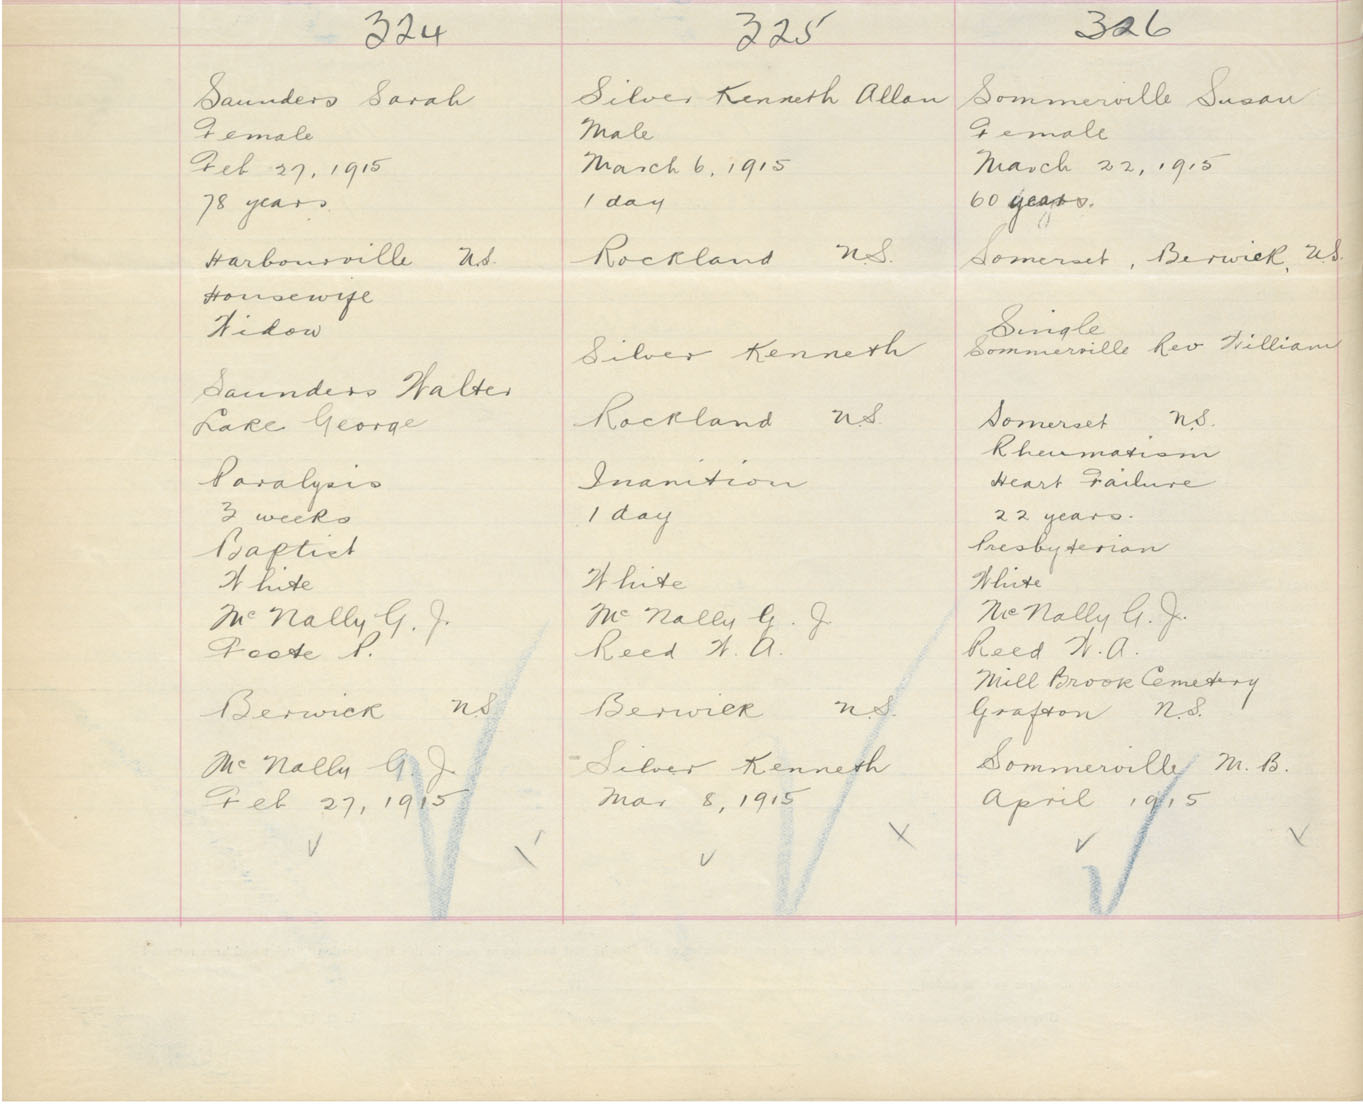 324
Saunders Sarah
Female
Feb 27, 1915
78 years.
Harbourville N.S.
Housewife
Widow
Saunders Walter
Lake George
Paralysis
3 weeks
Baptist
White
Mc Nally G. J.
Foote P.
Berwick N.S
Mc Nally G. J
Feb 27, 1915
325
Silver Kenneth Allan
Male
March 6, 1915
1 day
Rockland N.S.
Silver Kenneth
Rockland N.S.
Inanition
1 day
White
Mc Nally G. J.
Reed W. A.
Berwick N.S.
Silver Kenneth
Mar 8, 1915
326
Sommerville Susan
Female
March 22, 1915
60 years.
Somerset, Berwick, N.S.
Single
Sommerville Rev William
Somerset N.S.
Rheumatism
Heart Failure
22 years.
Presbyterian
White
Mc Nally G. J.
Reed W. A.
Mill Brook Cemetery
Grafton N.S.
Sommerville M. B.
April 1915